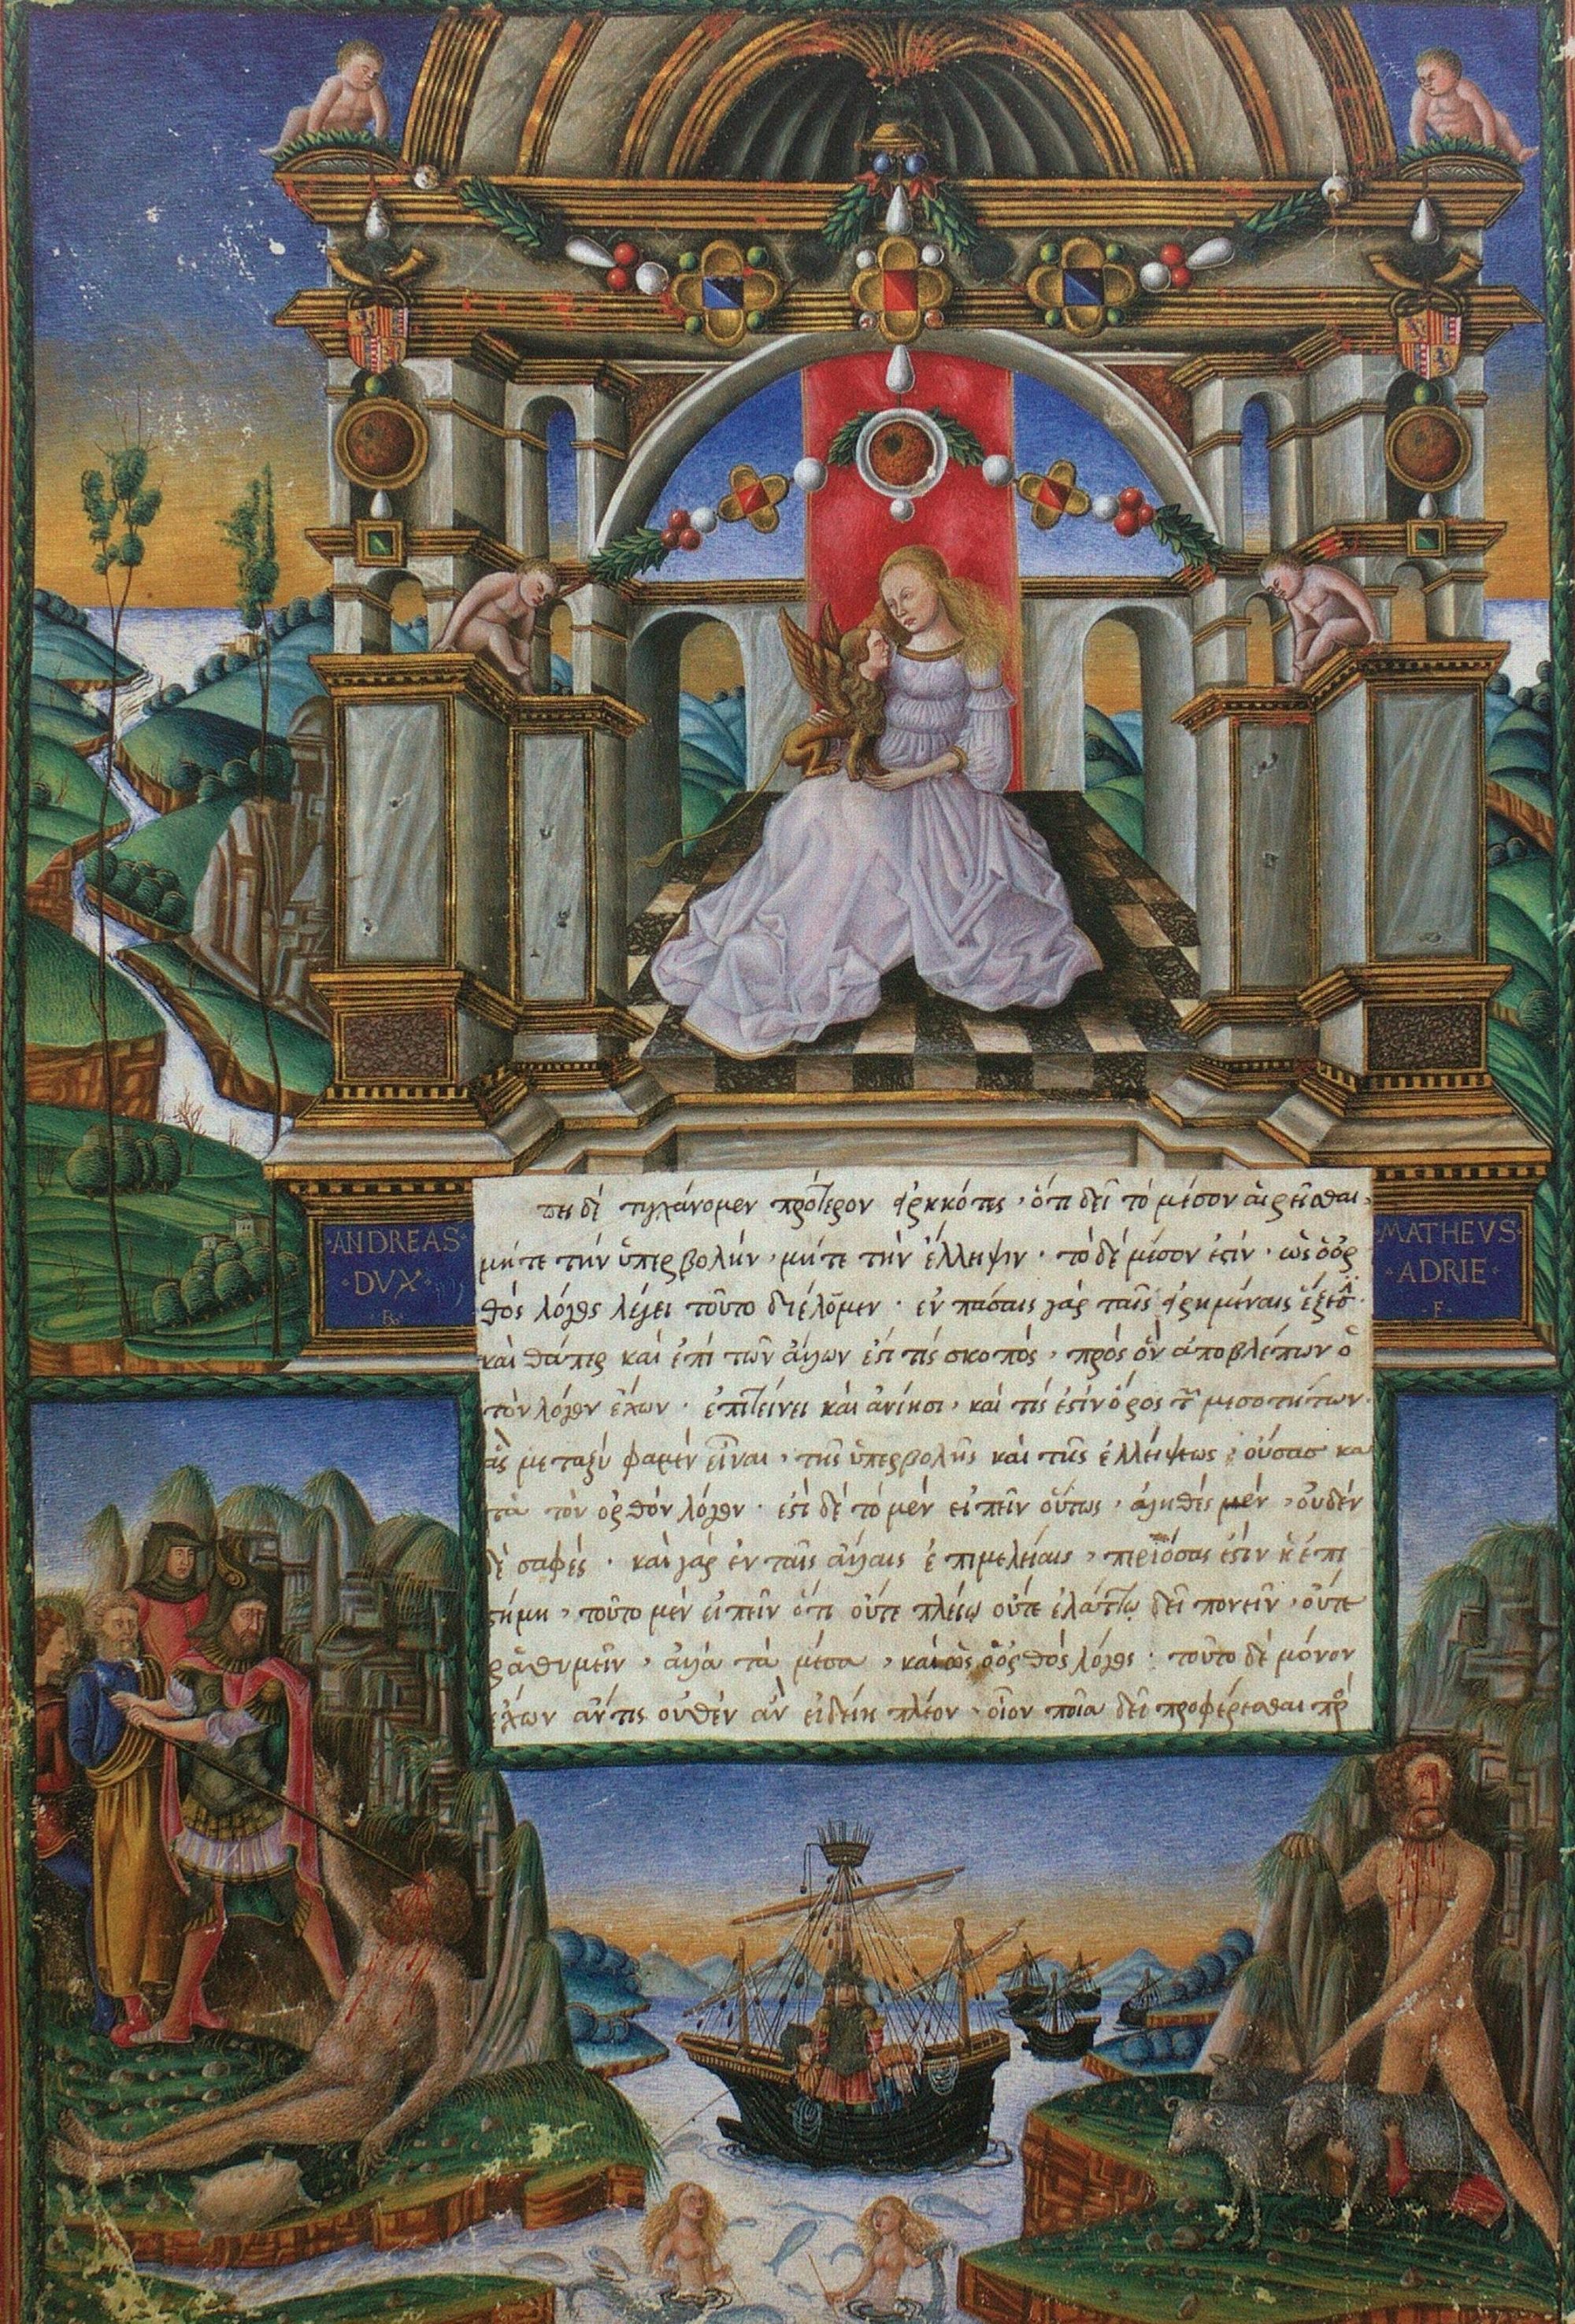 ·ANDREAS·
·DVX·
·B·
MATHEVS·
·ADRIE·
·F·
πει δὲ τυγχάνομεν πρότερον εἰρηκότες, ὅτι δεῖ τὸ μέσον αἱρεῖσθαι,
μήτε τὴν ὑπερβολὴν, μήτε τὴν ἔλλειψιν· τὸ δὲ μέσον ἐστὶν, ὡς ὁ ὀρ
θὸς λόγος λέγει τοῦτο διέλωμεν· ἐν πάσαις γὰρ ταῖς εἰρημέναις ἕξεσι·
καθάπερ καὶ ἐπὶ τῶν ἄλλων ἐστί τις σκοπὸς, πρὸς ὃν ἀποβλέπων ὁ
τὸν λόγον ἔχων· ἐπιτείνει καὶ ἀνίησι, καί τις ἐστὶν ὅρος τῶν μεσοτήτων·
ἃς μεταξύ φαμεν εἶναι, τῆς ὑπερβολῆς καὶ τῆς ἐλλείψεως, οὔσας κα
τὰ τὸν ὀρθὸν λόγον· ἐστὶ δὲ τὸ μὲν εἰπεῖν οὕτως, ἀληθὲς μὲν, οὐδὲν
δὲ σαφές· καὶ γὰρ ἐν ταῖς ἄλλαις ἐπιμελείαις, περὶ ὅσας ἐστὶν ἡ ἐπι
στήμη, τοῦτο μὲν εἰπεῖν ὅτι οὔτε πλείω οὔτε ἐλάττω δεῖ πονεῖν, οὔτε
ῥαθυμεῖν, ἀλλὰ τὰ μέσα, καὶ ὡς ὁ ὀρθὸς λόγος· τοῦτο δὲ μόνον
ἔχων ἄν τις οὐθὲν ἂν εἰδείη πλέον· οἷον ποῖα δεῖ προσφέρεσθαι πρὸς